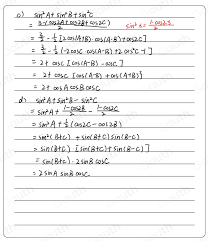 c) sin²A + sin²B + sin²C
= 3-(cos2A+cos2B+cos2C) / 2 sin²x = 1-cos2x / 2
= 3/2 - 1/2 [2cos(A+B)·cos(A-B)+cos2C]
= 3/2 - 1/2 (-2cosC·cos(A-B)+2cos²C-1]
= 2+ cosC [cos(A-B) - cosC]
= 2+ cosC [cos(A-B) + cos(A+B)]
= 2+ cosA cosB cosC
d) sin²A + sin²B - sin²C
= sin²A + 1-cos2B / 2 - 1-cos2C / 2
= sin²A + 1/2 (cos2C - cos2B)
= sin²(B+C) + sin(B+C) sin(B-C)
= sin(B+C) [sin(B+C) + sin(B-C)]
= sin(B+C) · 2sinB cosC
= 2sinA sinB cosC